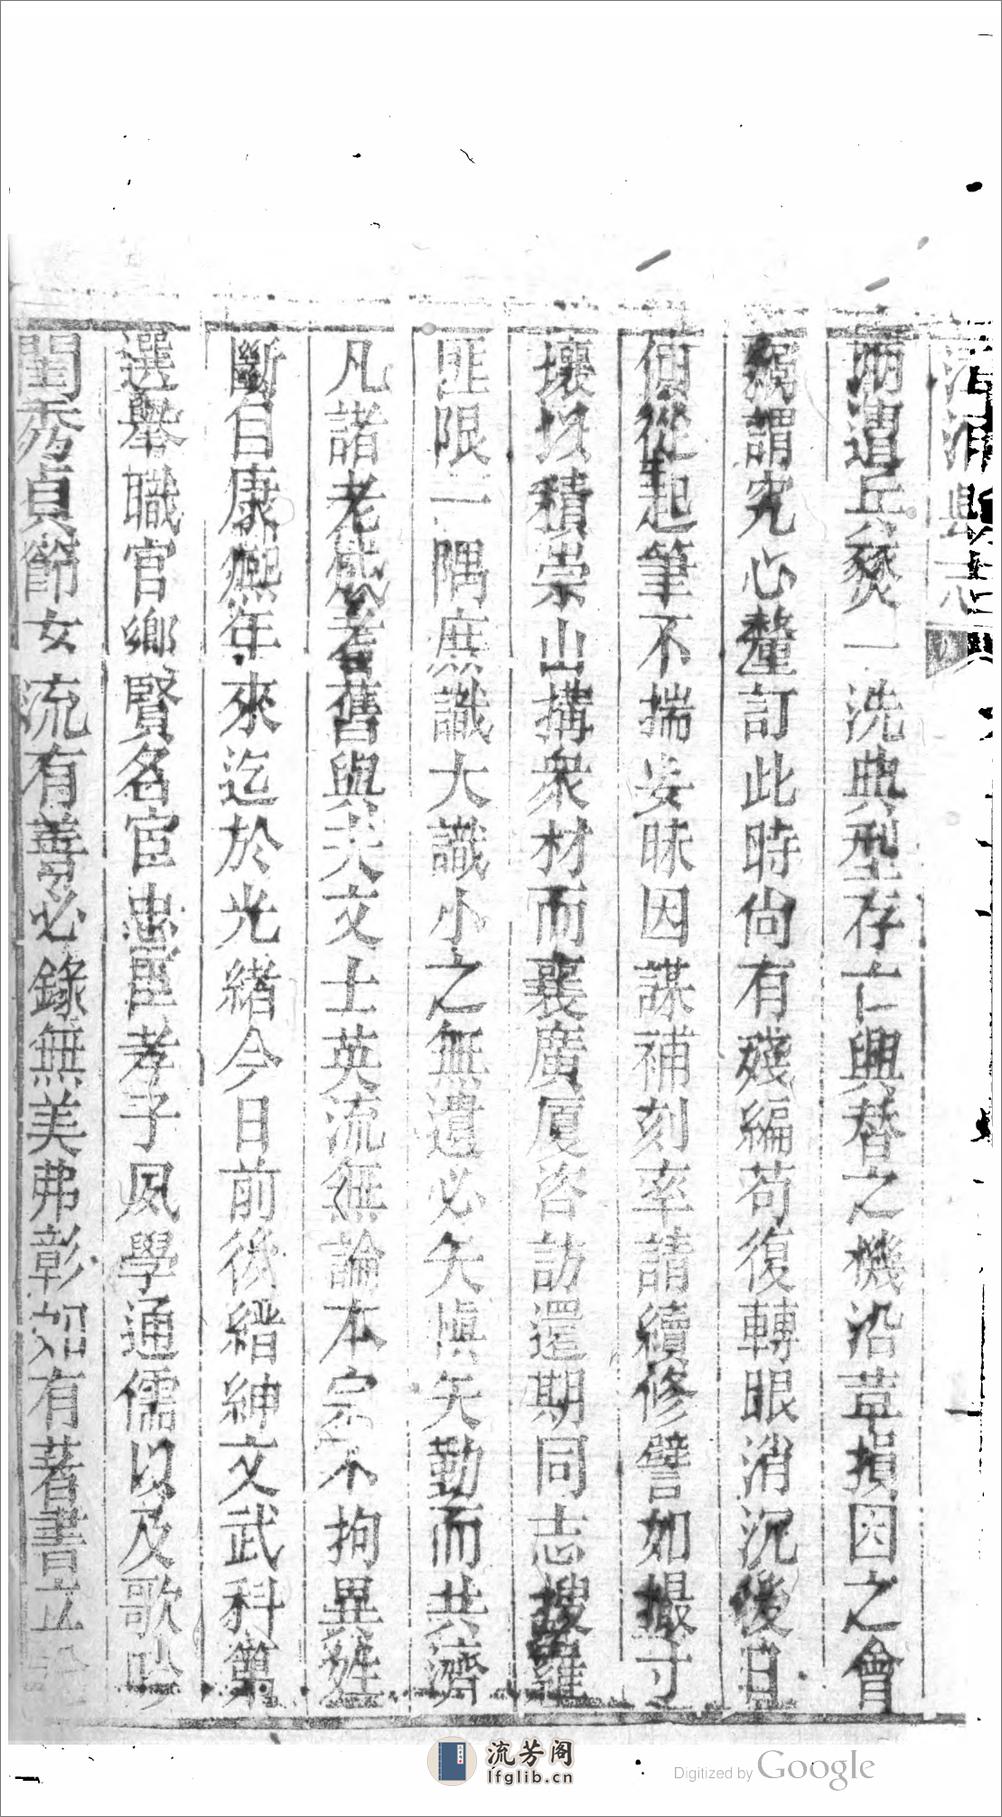 遺兵燹一洗典型存亡興替之機沿革損因之會
竊謂究心釐訂此時尚有殘編苟復轉眼消沉後日
何從起筆不揣妄昧因謀補刻率請續修譬如撮寸
壤以積崇山搆衆材而襄廣厦咨訪還期同志搜羅
匪限一隅庶識大識小之無遺必矢慎矢勤而共濟
凡諸老成耆舊與夫文士英流無論本宗不拘異姓
斷自康熙年來迄於光緒今日前後縉紳文武科第
選舉職官鄉賢名宦忠臣孝子夙學通儒以及歌吟
閨秀貞節女流有善必錄無美弗彰如有著書立
流芳阁
lfglib.cn
Digitized by Google